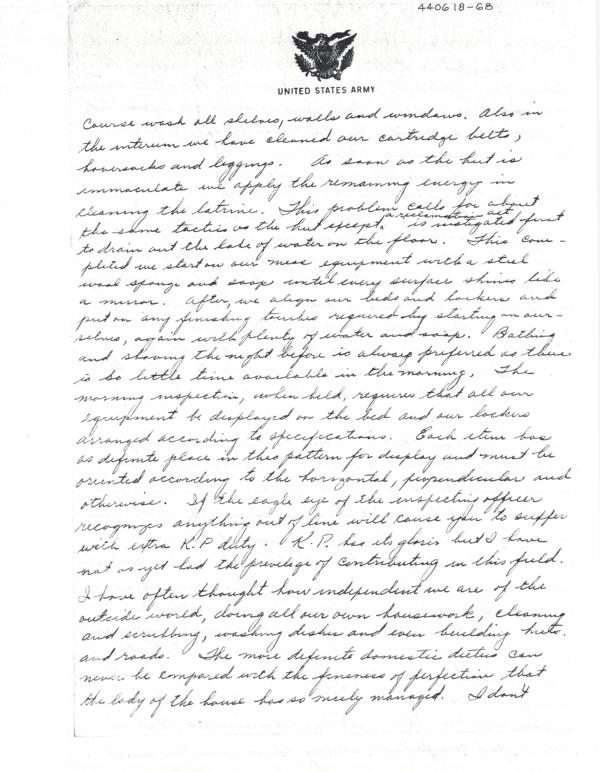 440618-68
UNITED STATES ARMY
Course wash all shelves, walls and windows. Also in
the interum we have cleaned our cartridge belts,
haversacks and leggings. As soon as the hut is
immaculate we apply the remaining energy in
cleaning the latrine. This problem calls for about
the same tactics as the hut except, a reclamation act is instigated first
to drain out the lake of water on the floor. This com-
pleted we start on our mess equipment with a steel
wool sponge and soap until every surface shines like
a mirror. After, we align our beds and lockers and
put on any finishing touches required by starting on our-
selves, again with plenty of water and soap. Bathing
and shaving the night before is always preferred as there
is so little time available in the morning. The
morning inspection, when held, requires that all our
equipment be displayed on the bed and our lockers
arranged according to specifications. Each item has
as definite place in this pattern for display and must be
oriented according to the horizontal, perpendicular and
otherwise. If the eagle eye of the inspecting officer
recognizes anything out of line will cause you to suffer
with extra K.P. duty. K.P. has its glories but I have
not as yet had the privelege of contributing in this field.
I have often thought how independent we are of the
outside world, doing all our own housework, cleaning
and scrubbing, washing dishes and even building huts.
and roads. The more definite domestic duties can
never be compared with the fineness of perfection that
the lady of the house has so nicely managed. I don't